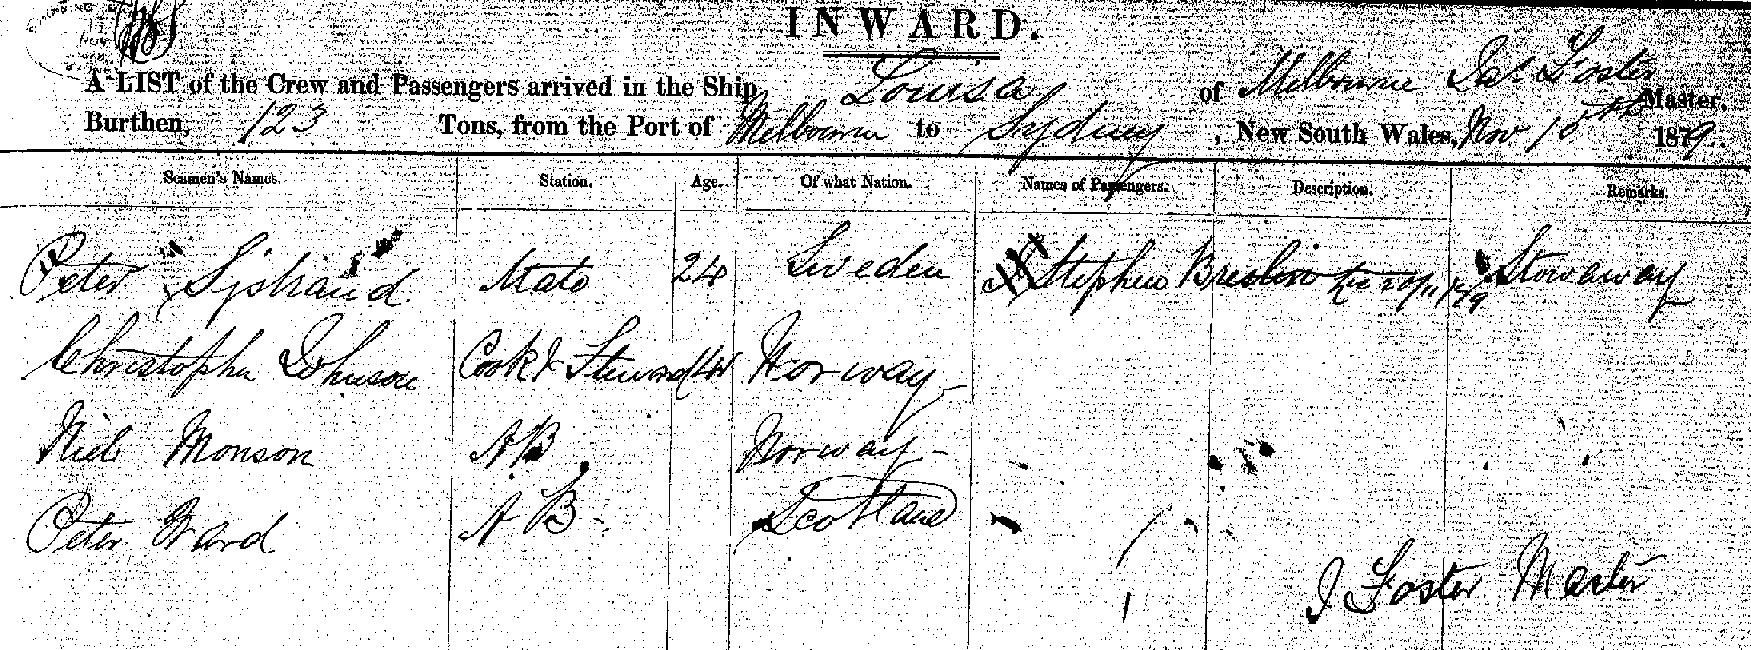 INWARD.
A LIST of the Crew and Passengers arrived in the Ship Louisa of Melbourne Jas Foster Master,
Burthen, 123 Tons, from the Port of Melbourne to Sydney, New South Wales, Nov 15th 1879.
Seamen's Names. Station. Age. Of what Nation. Names of Passengers. Description. Remarks.
Peter Sjstrand Mate 24 Sweden Stephen Breslin Stowaway
Christopher Johnson Cook & Steward 44 Norway
Niel Monson AB Norway
Peter Ward AB Scotland
J Foster Master